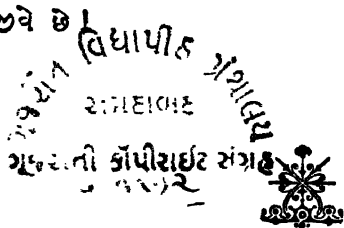 જીવે છે!
ગૂજરાત વિદ્યાપીઠ ગ્રંથાલય
અમદાવાદ
ગૂજરાતી કૉપીરાઈટ સંગ્રહ